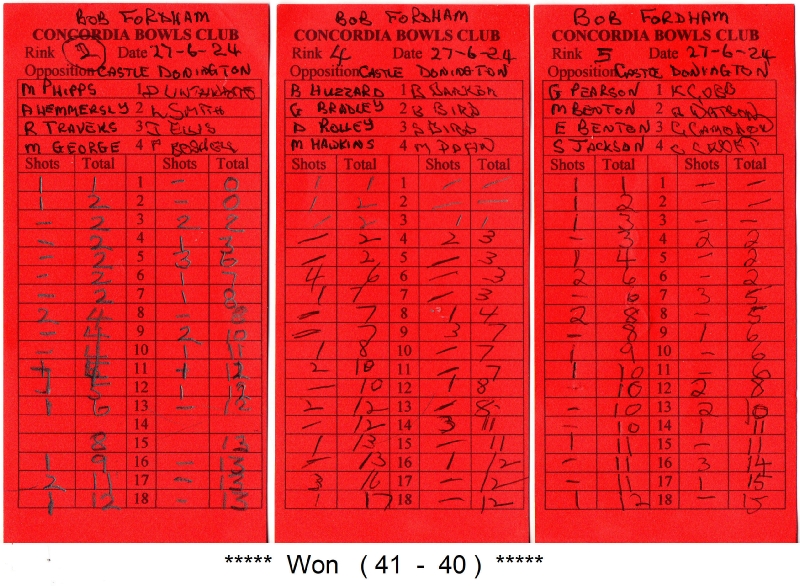 BOB FORDHAM
CONCORDIA BOWLS CLUB
Rink 2 Date 27-6-24
Opposition CASTLE DONINGTON
M PHIPPS 1
A HEMMERSLY 2 SMITH
R TRAVERS 3 J ELLIS
M GEORGE 4 F
Shots Total Shots Total
1 1 1 - 0
1 2 2 - 0
- 2 3 2 2
- 2 4 1 3
- 2 5 3
- 2 6 1 7
- 2 7 1 8
2 4 8 -
- 4 9 2
- 10 -
11
12
1 6 13 -
14
8 15
1 9 16 -
2 11 17 -
1 12 18 -
BOB FORDHAM
CONCORDIA BOWLS CLUB
Rink 4 Date 27-6-24
Opposition CASTLE DONINGTON
B HUZZARD 1 B
G BRADLEY 2 B BIRD
D ROLLEY 3 S BIRD
M HAWKINS 4 M
Shots Total Shots Total
1 1 1 - -
1 2 2 - -
- 2 3 1 1
- 2 4 2 3
- 2 5 - 3
4 6 6 - 3
1 7 7 - 3
- 7 8 1 4
- 7 9 3 7
1 8 10 - 7
2 10 11 - 7
- 10 12 1 8
2 12 13 - 8
- 12 14 3 11
1 13 15 - 11
- 13 16 1 12
3 16 17 - 12
1 17 18 - 12
BOB FORDHAM
CONCORDIA BOWLS CLUB
Rink 5 Date 27-6-24
Opposition CASTLE DONINGTON
G PEARSON 1 K COBB
M BENTON 2
E BENTON 3
S JACKSON 4
Shots Total Shots Total
1 1 1 - -
1 2 2 - -
1 3 3 - -
- 3 4 2 2
1 4 5 - 2
2 6 6 - 2
- 6 7 3 5
2 8 8 - 5
- 8 9 1 6
1 9 10 - 6
1 10 11 - 6
- 10 12 2 8
- 10 13 2 10
- 10 14 1 11
1 11 15 - 11
- 11 16 3 14
- 11 17 1 15
1 12 18 - 15
***** Won ( 41 - 40 ) *****